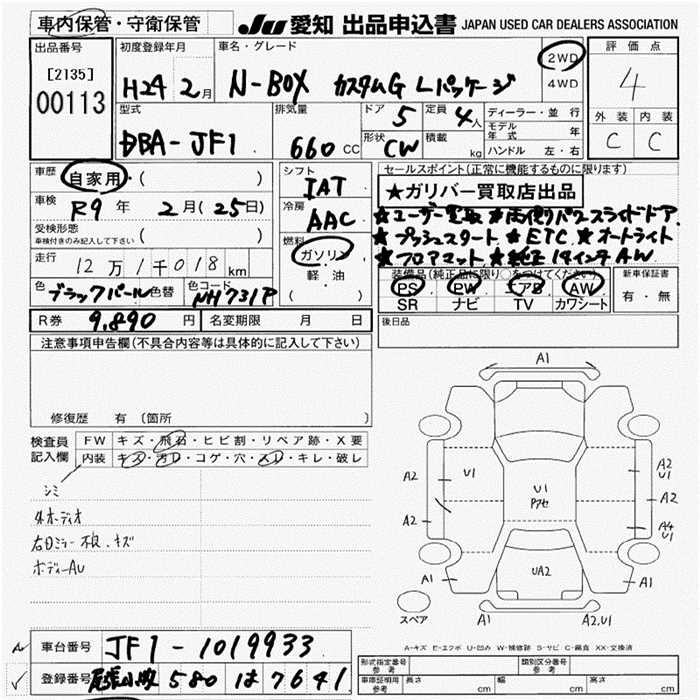 車内保管・守衛保管
JU 愛知 出品申込書 JAPAN USED CAR DEALERS ASSOCIATION
出品番号
[2135]
00113
初度登録年月
H24 2月
車名・グレード
N-BOX カスタムG Lパッケージ
2WD
4WD
評価点
4
外装 内装
C C
型式
DBA-JF1
排気量
660 CC
ドア 5
定員 4人
形状 CW
積載 kg
ディーラー・並行
モデル年式 年
ハンドル 左・右
車歴
自家用 ( )
車検
R9年 2月 (25日)
受検形態
車検付きのみ記入して下さい ( )
走行
12万1千018km
色 ブラックパール 色替
色コード NH731P
シフト
IAT
冷房
AAC
燃料
ガソリン
軽・油
( )
セールスポイント(正常に機能するものに限ります)
★ガリバー買取店出品
★ユーザー買取 ★両側パワースライドドア
★プッシュスタート ★ETC ★オートライト
★フロアマット ★純正14インチAW
装備品(純正品に限り○をつけてください)
PS PW エアB AW
SR ナビ TV カワシート
新車保証書
有・無
R券 9,890 円
名変期限 月 日
後日品
注意事項申告欄(不具合内容等は具体的に記入して下さい)
修復歴 有 (箇所
検査員記入欄
FW キズ・飛石・ヒビ割・リペア跡・X要
内装 キズ・汚レ・コゲ・穴・スレ・キレ・破レ
シミ
外オーディオ
右Dミラー不良、キズ
ボディーAU
A1
A2 U1
U1
Pアセ
A2
U1
A2
A4
U1
UA2
A1
A1
A2U1
スペア
A-キズ E-エクボ U-凹み W-補修跡 S-サビ C-腐食 XX-交換済
車台番号 JF1-1019933
登録番号 尾張小牧 580 は 7641
形式指定番号 参考
類別区分番号 参考
車庫証明用 参考
長さ cm
幅 cm
高さ cm